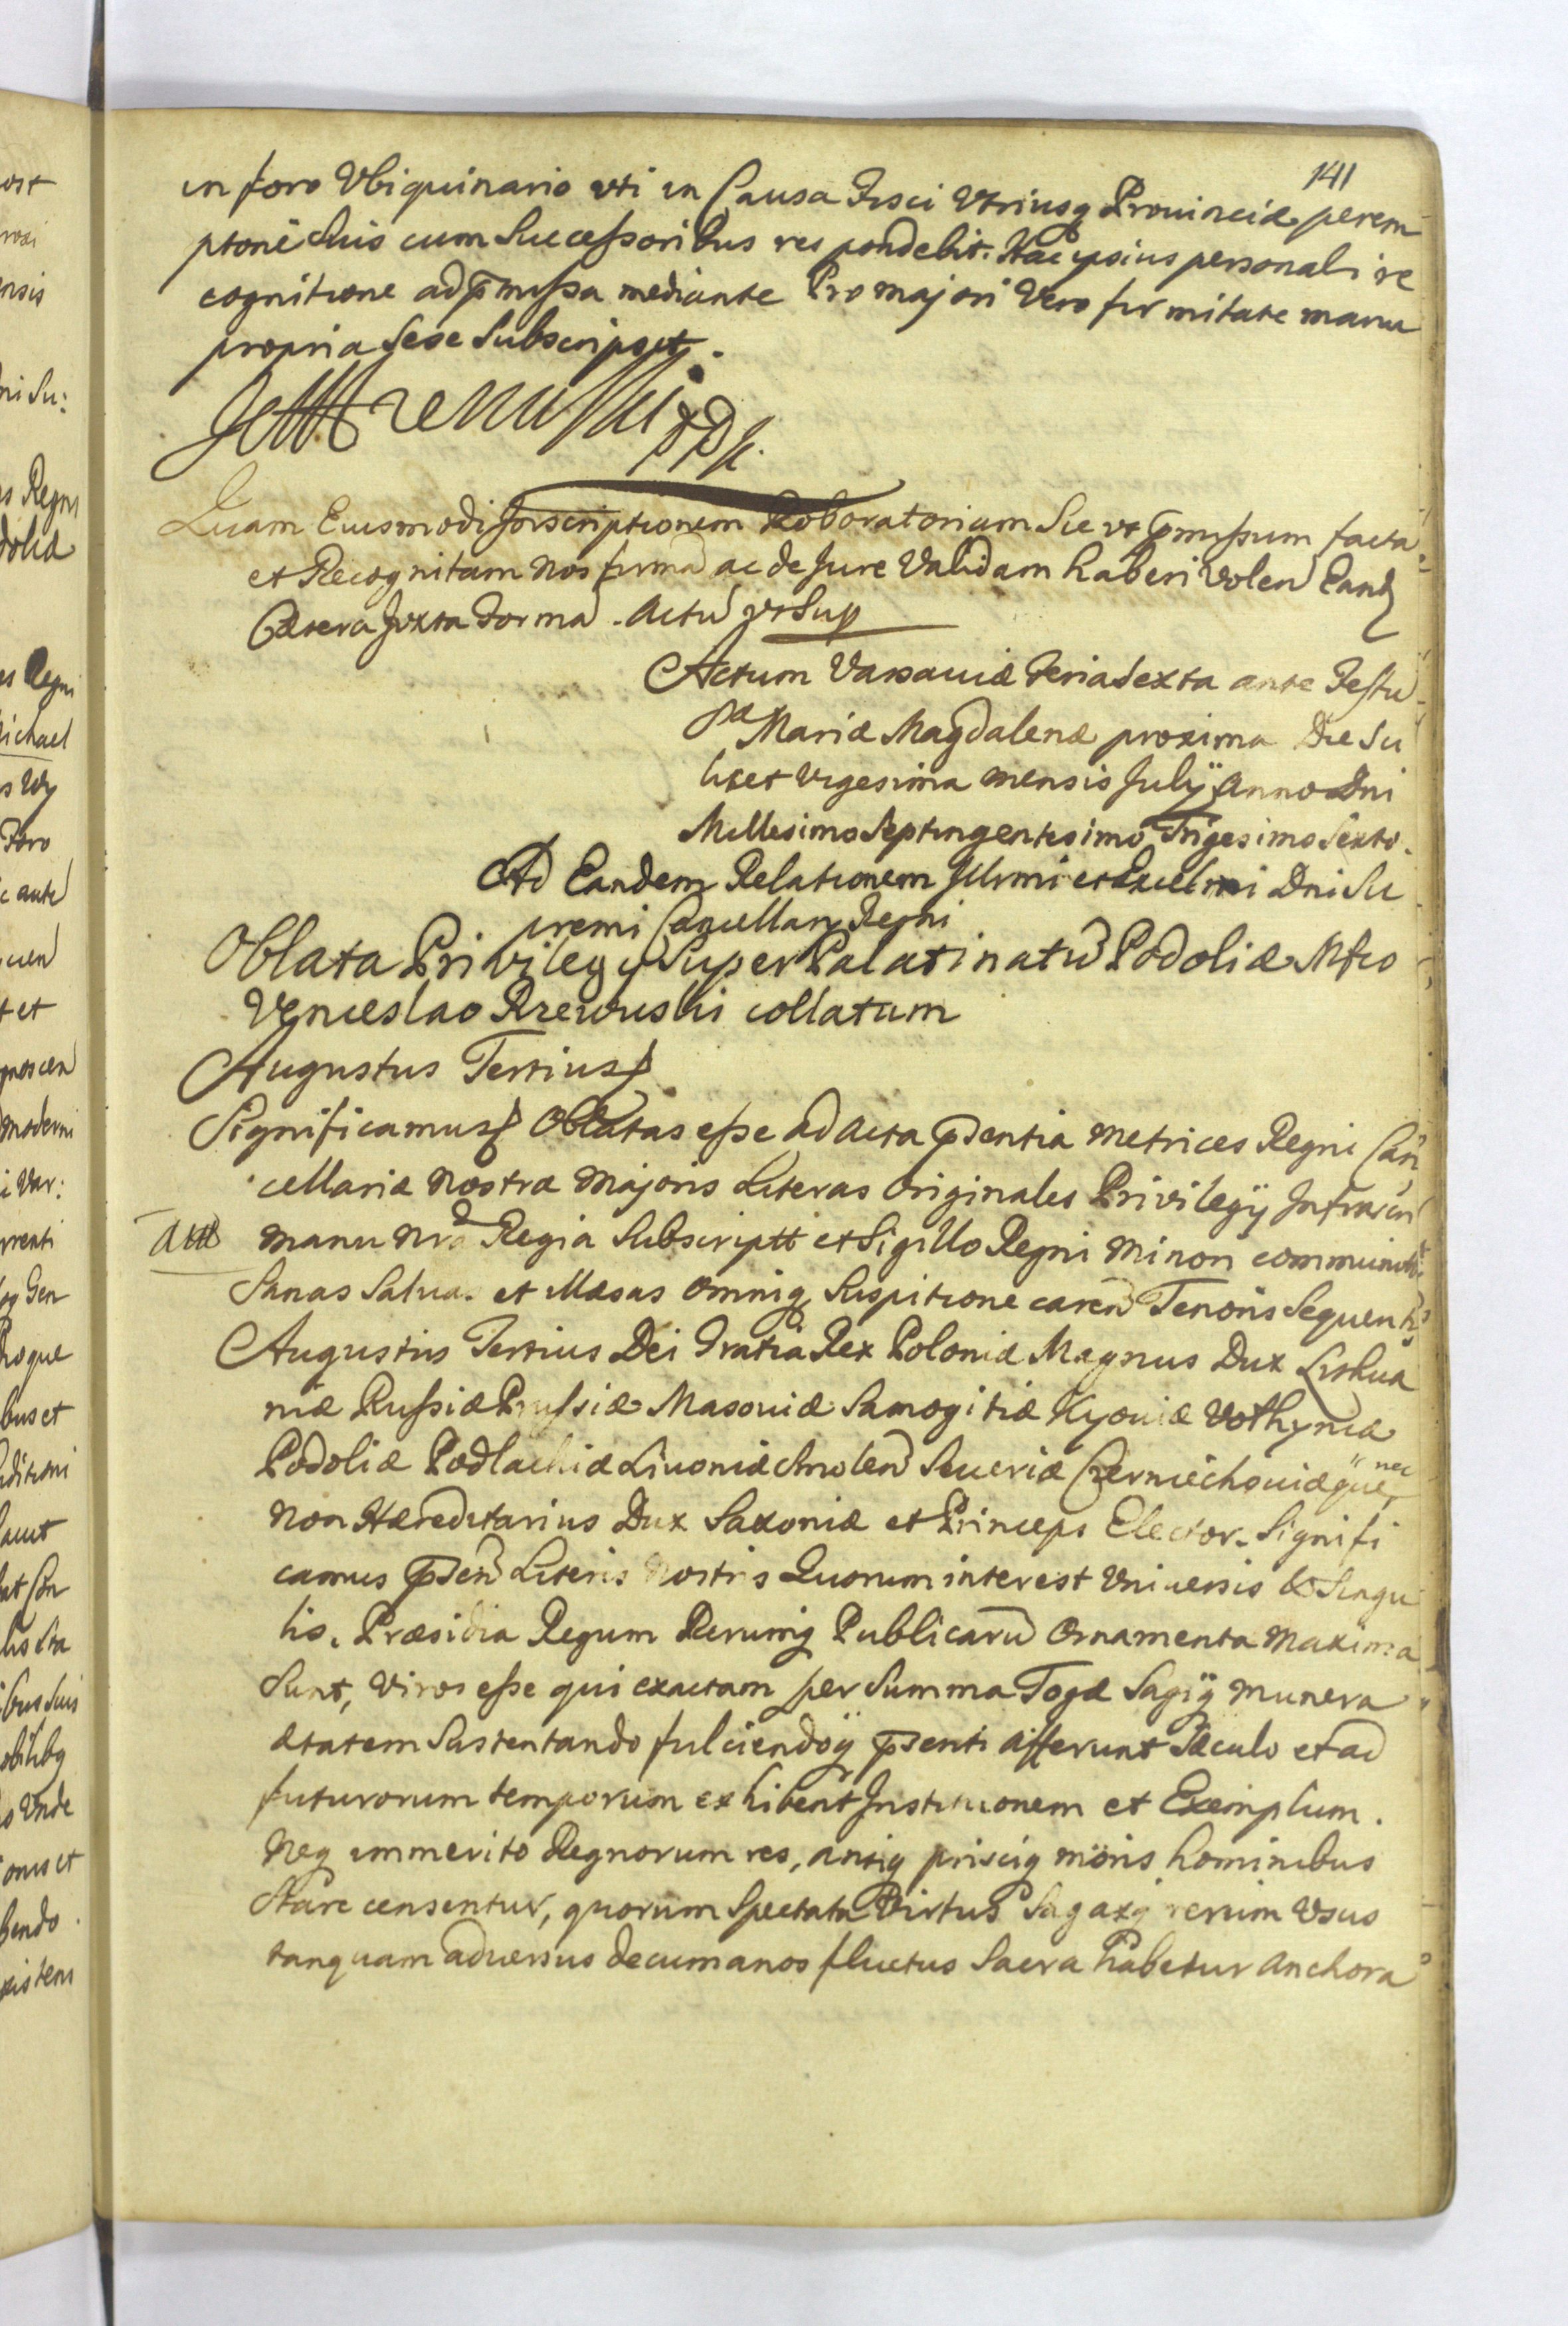 141
in foro Ubiquinario uti in Causa Fisci Utriusq Provinciæ perem
ptorie Suis cum Successoribus respondebit. Hac ipsius personali re
cognitione ad præmissa mediante Pro majori Vero firmitate manu
propria Sese Subscripsit.
Quam Eiusmodi Inscriptionem Roboratoriam Sic ut pmissum facta
et Recognitam Nos firmã ac de Jure Validam haberi Volen Eand
Cætera Juxta Formã. Actũ ut Sup
Actum Varsaviæ Feria Sexta ante Festũ
Sæ Mariæ Magdalenæ proxima Die Sci
licet Vigesima mensis Julÿ Anno Dni
Millesimo Septingentesimo Trigesimo Sexto.
Ad Eandem Relationem Illrmi et Excellmi Dni Su
premi Cancellarÿ Regni
Oblata Privilegÿ Super Palatinatũ Podoliæ Mfco
Venceslao Rzewuski collatum
Augustus Tertius
Significamus Oblatas esse ad Acta pñtia Metrices Regni Can
cellariæ Nostræ Majoris Literas Originales Privilegÿ Infrascri
manu nrã Regia Subscriptt et Sigillo Regni Minori communitt
Sanas Salvas et Illæsas omniq Suspitione caren Tenoris Sequentis
Augustus Tertius Dei Gratia Rex Poloniæ Magnus Dux Lithua
niæ Russiæ Prussiæ Masoviæ Samogitiæ Kyoviæ Volhyniæ
Podoliæ Podlachiæ Livoniæ Smolen Severiæ Czerniechoviæque nec
non Hæreditarius Dux Saxoniæ et Princeps Elector. Signifi
camus pñtĩ Literis Nostris Quorum interest Universis & Singu
lis. Præsidia Regum Rerumq Publicarũ Ornamenta maxima
Sunt, Viros esse qui exactam per Summa Togæ Sagiq munera
ætatem Sustentando fulciendoq pñti afferunt Sæculo et ad
futurorum temporum exhibent Institutionem et Exemplum.
Neq immerito Regnorum res, antiq prisciq moris hominibus
Stare censentur, quorum Spectata Virtus Sagaxq rerum Usus
tanquam adversus decumanos fluctus Sacra habetur Anchora